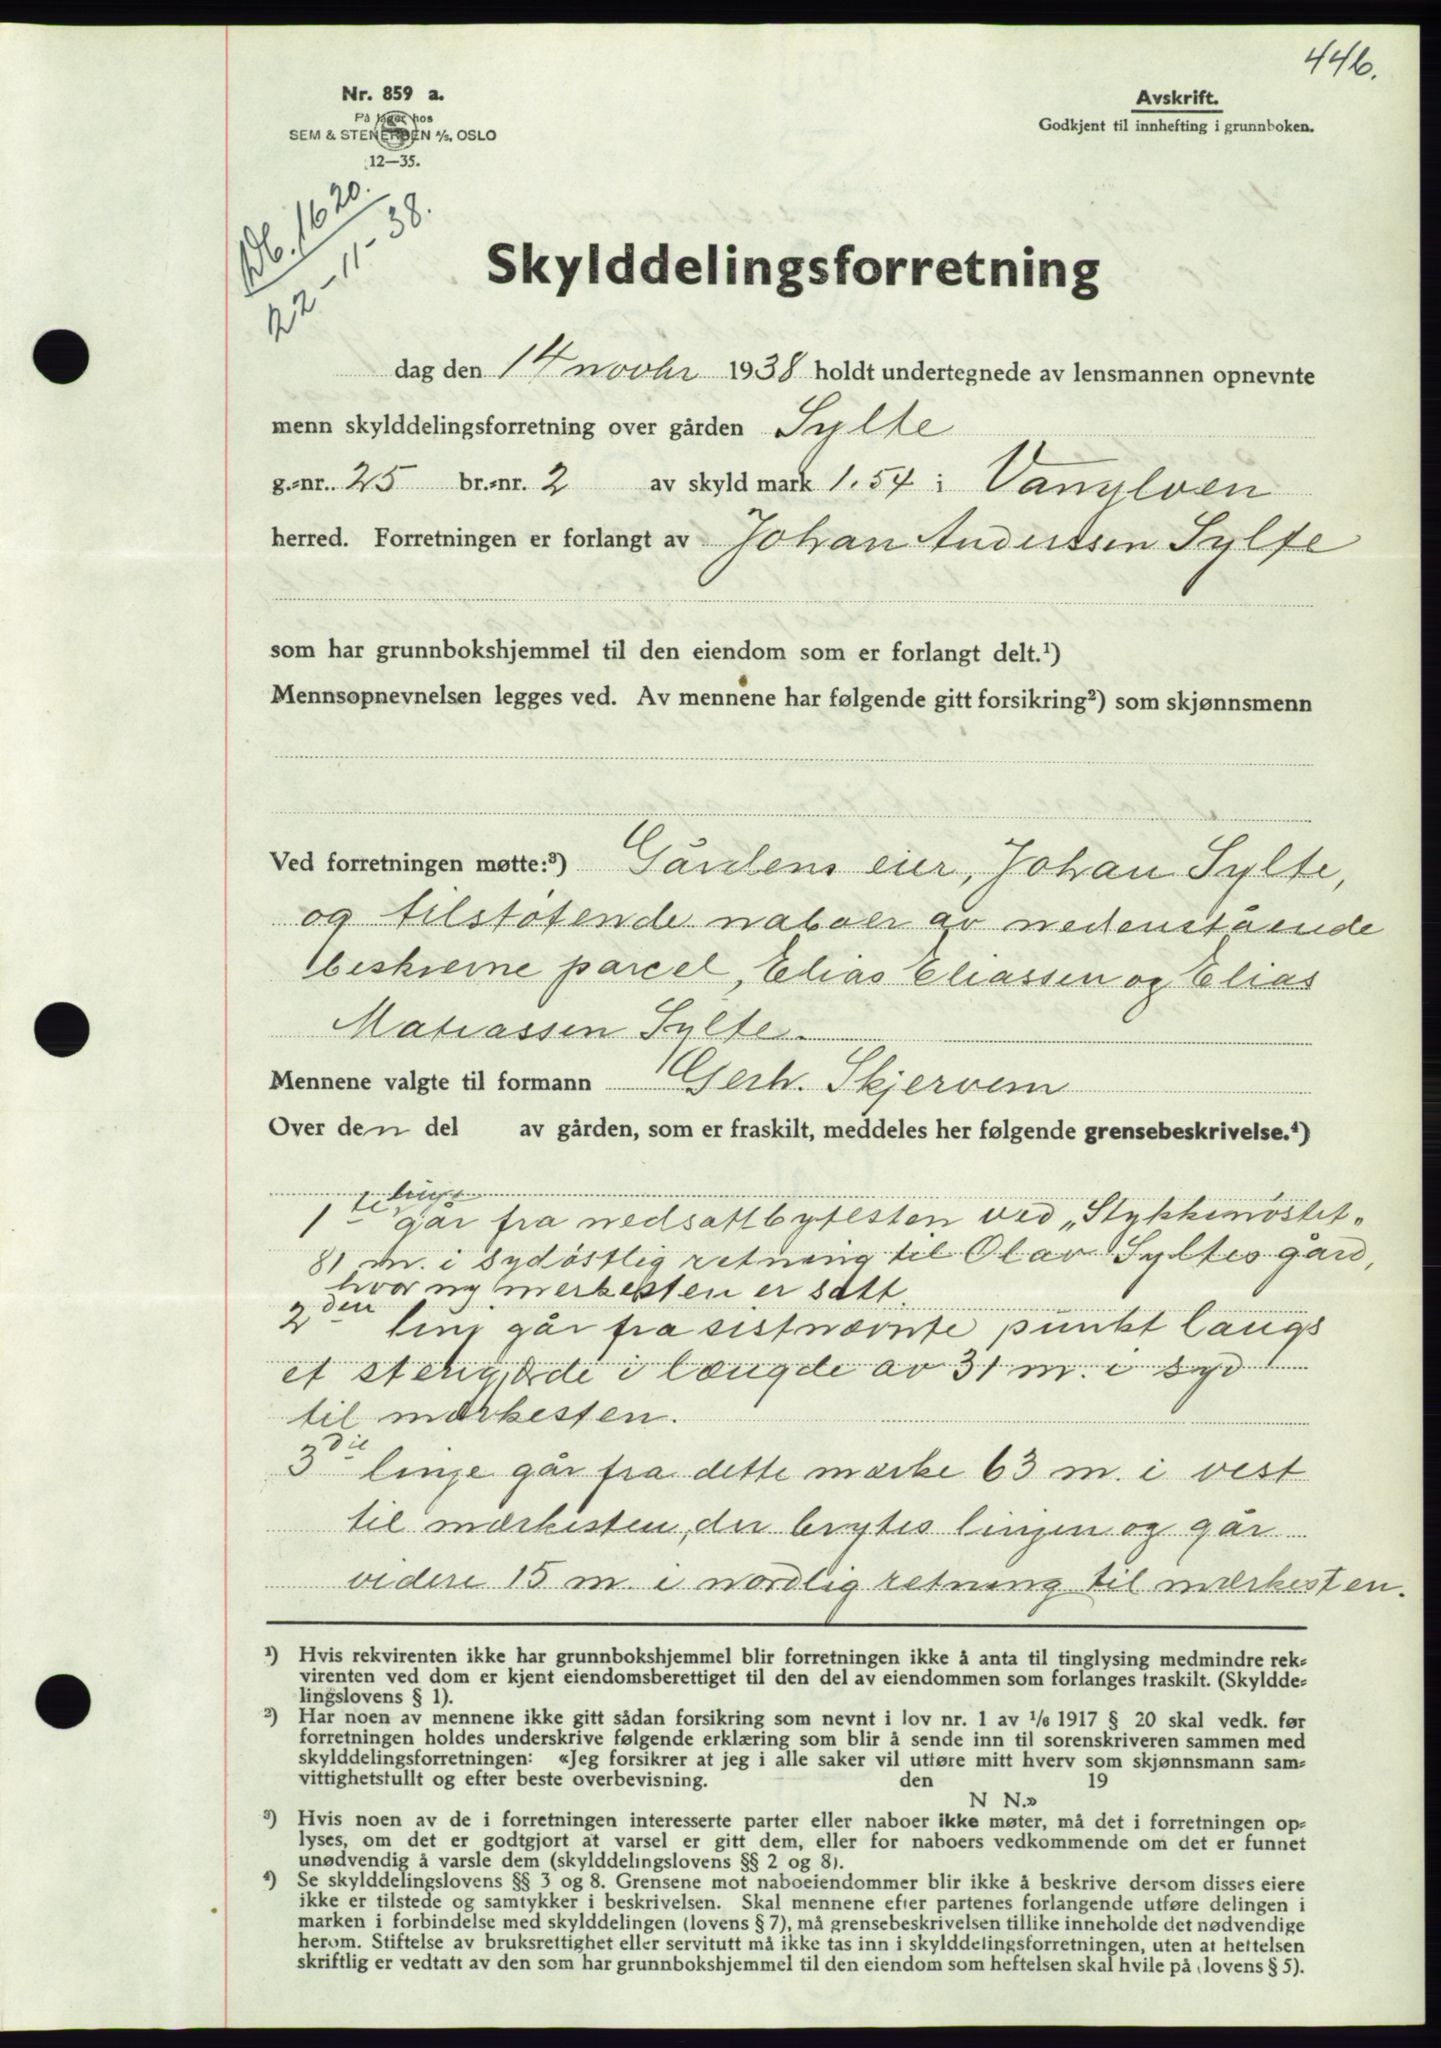 446.
Nr. 859 a.
På lager hos
SEM & STENERSEN A/S. OSLO
12—35.
Avskrift.
Godkjent til innhefting i grunnboken.
Db. 1620.
22-11-38.
Skylddelingsforretning
dag den 14 novbr 1938 holdt undertegnede av lensmannen opnevnte
menn skylddelingsforretning over gården Sylte
g.-nr. 25 br.-nr. 2 av skyld mark 1.54 i Vanylven
herred. Forretningen er forlangt av Johan Anderssen Sylte
som har grunnbokshjemmel til den eiendom som er forlangt delt.¹)
Mennsopnevnelsen legges ved. Av mennene har følgende gitt forsikring²) som skjønnsmenn
Ved forretningen møtte:³) Gårdens eier, Johan Sylte,
og tilstøtende naboer av nedenstående
beskrevne parcel, Elias Eliassen og Elias
Matiassen Sylte.
Mennene valgte til formann Gerh. Skjervem
Over den del av gården, som er fraskilt, meddeles her følgende grensebeskrivelse.⁴)
1te linje går fra nedsattbytesten ved „Stykkenøstet"
81 m. i sydøstlig retning til Olav Syltes gård,
hvor ny merkesten er satt.
2den linj går fra sistnævnte punkt langs
et stengjærde i længde av 31 m. i syd
til mærkesten.
3die linje går fra dette mærke 63 m. i vest
til mærkesten, der brytes linjen og går
videre 15 m. i nordlig retning til mærkesten.
¹) Hvis rekvirenten ikke har grunnbokshjemmel blir forretningen ikke å anta til tinglysing medmindre rek-
virenten ved dom er kjent eiendomsberettiget til den del av eiendommen som forlanges fraskilt. (Skyldde-
lingslovens § 1).
²) Har noen av mennene ikke gitt sådan forsikring som nevnt i lov nr. 1 av 1/6 1917 § 20 skal vedk. før
forretningen holdes underskrive følgende erklæring som blir å sende inn til sorenskriveren sammen med
skylddelingsforretningen: «Jeg forsikrer at jeg i alle saker vil utføre mitt hverv som skjønnsmann sam-
vittighetsfullt og efter beste overbevisning. den 19
N N.»
³) Hvis noen av de i forretningen interesserte parter eller naboer ikke møter, må det i forretningen op-
lyses, om det er godtgjort at varsel er gitt dem, eller for naboers vedkommende om det er funnet
unødvendig å varsle dem (skylddelingslovens §§ 2 og 8).
⁴) Se skylddelingslovens §§ 3 og 8. Grensene mot naboeiendommer blir ikke å beskrive dersom disses eiere
ikke er tilstede og samtykker i beskrivelsen. Skal mennene efter partenes forlangende utføre delingen i
marken i forbindelse med skylddelingen (lovens § 7), må grensebeskrivelsen tillike inneholde det nødvendige
herom. Stiftelse av bruksrettighet eller servitutt må ikke tas inn i skylddelingsforretningen, uten at heftelsen
skriftlig er vedtatt av den som har grunnbokshjemmel til den eiendom som heftelsen skal hvile på (lovens § 5).